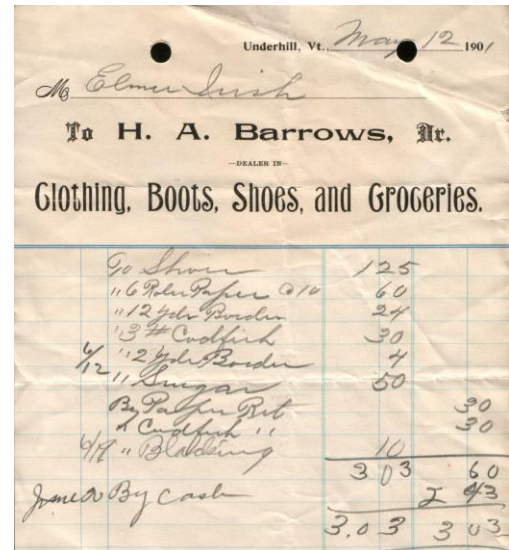 Underhill, Vt., May 12 1901
M Elmer Irish
To H. A. Barrows, Dr.
—DEALER IN—
Clothing, Boots, Shoes, and Groceries.
To Shoes 125
" 6 Roles Paper @ 10 60
" 12 yds Border 24
" 3 # Codfish 30
6/12 " 2 yds Border 4
" Sugar 50
By Paper Ret 30
" Codfish " 30
6/19 " Blacking 10
303 60
2 43
June By Cash
3.03 303